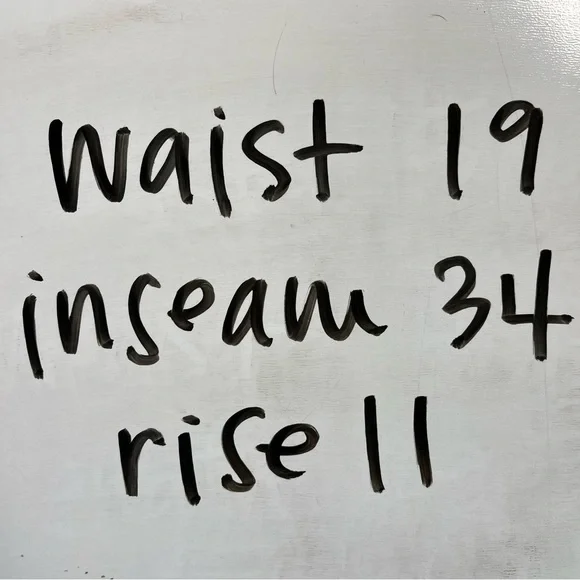 waist 19
inseam 34
rise 11